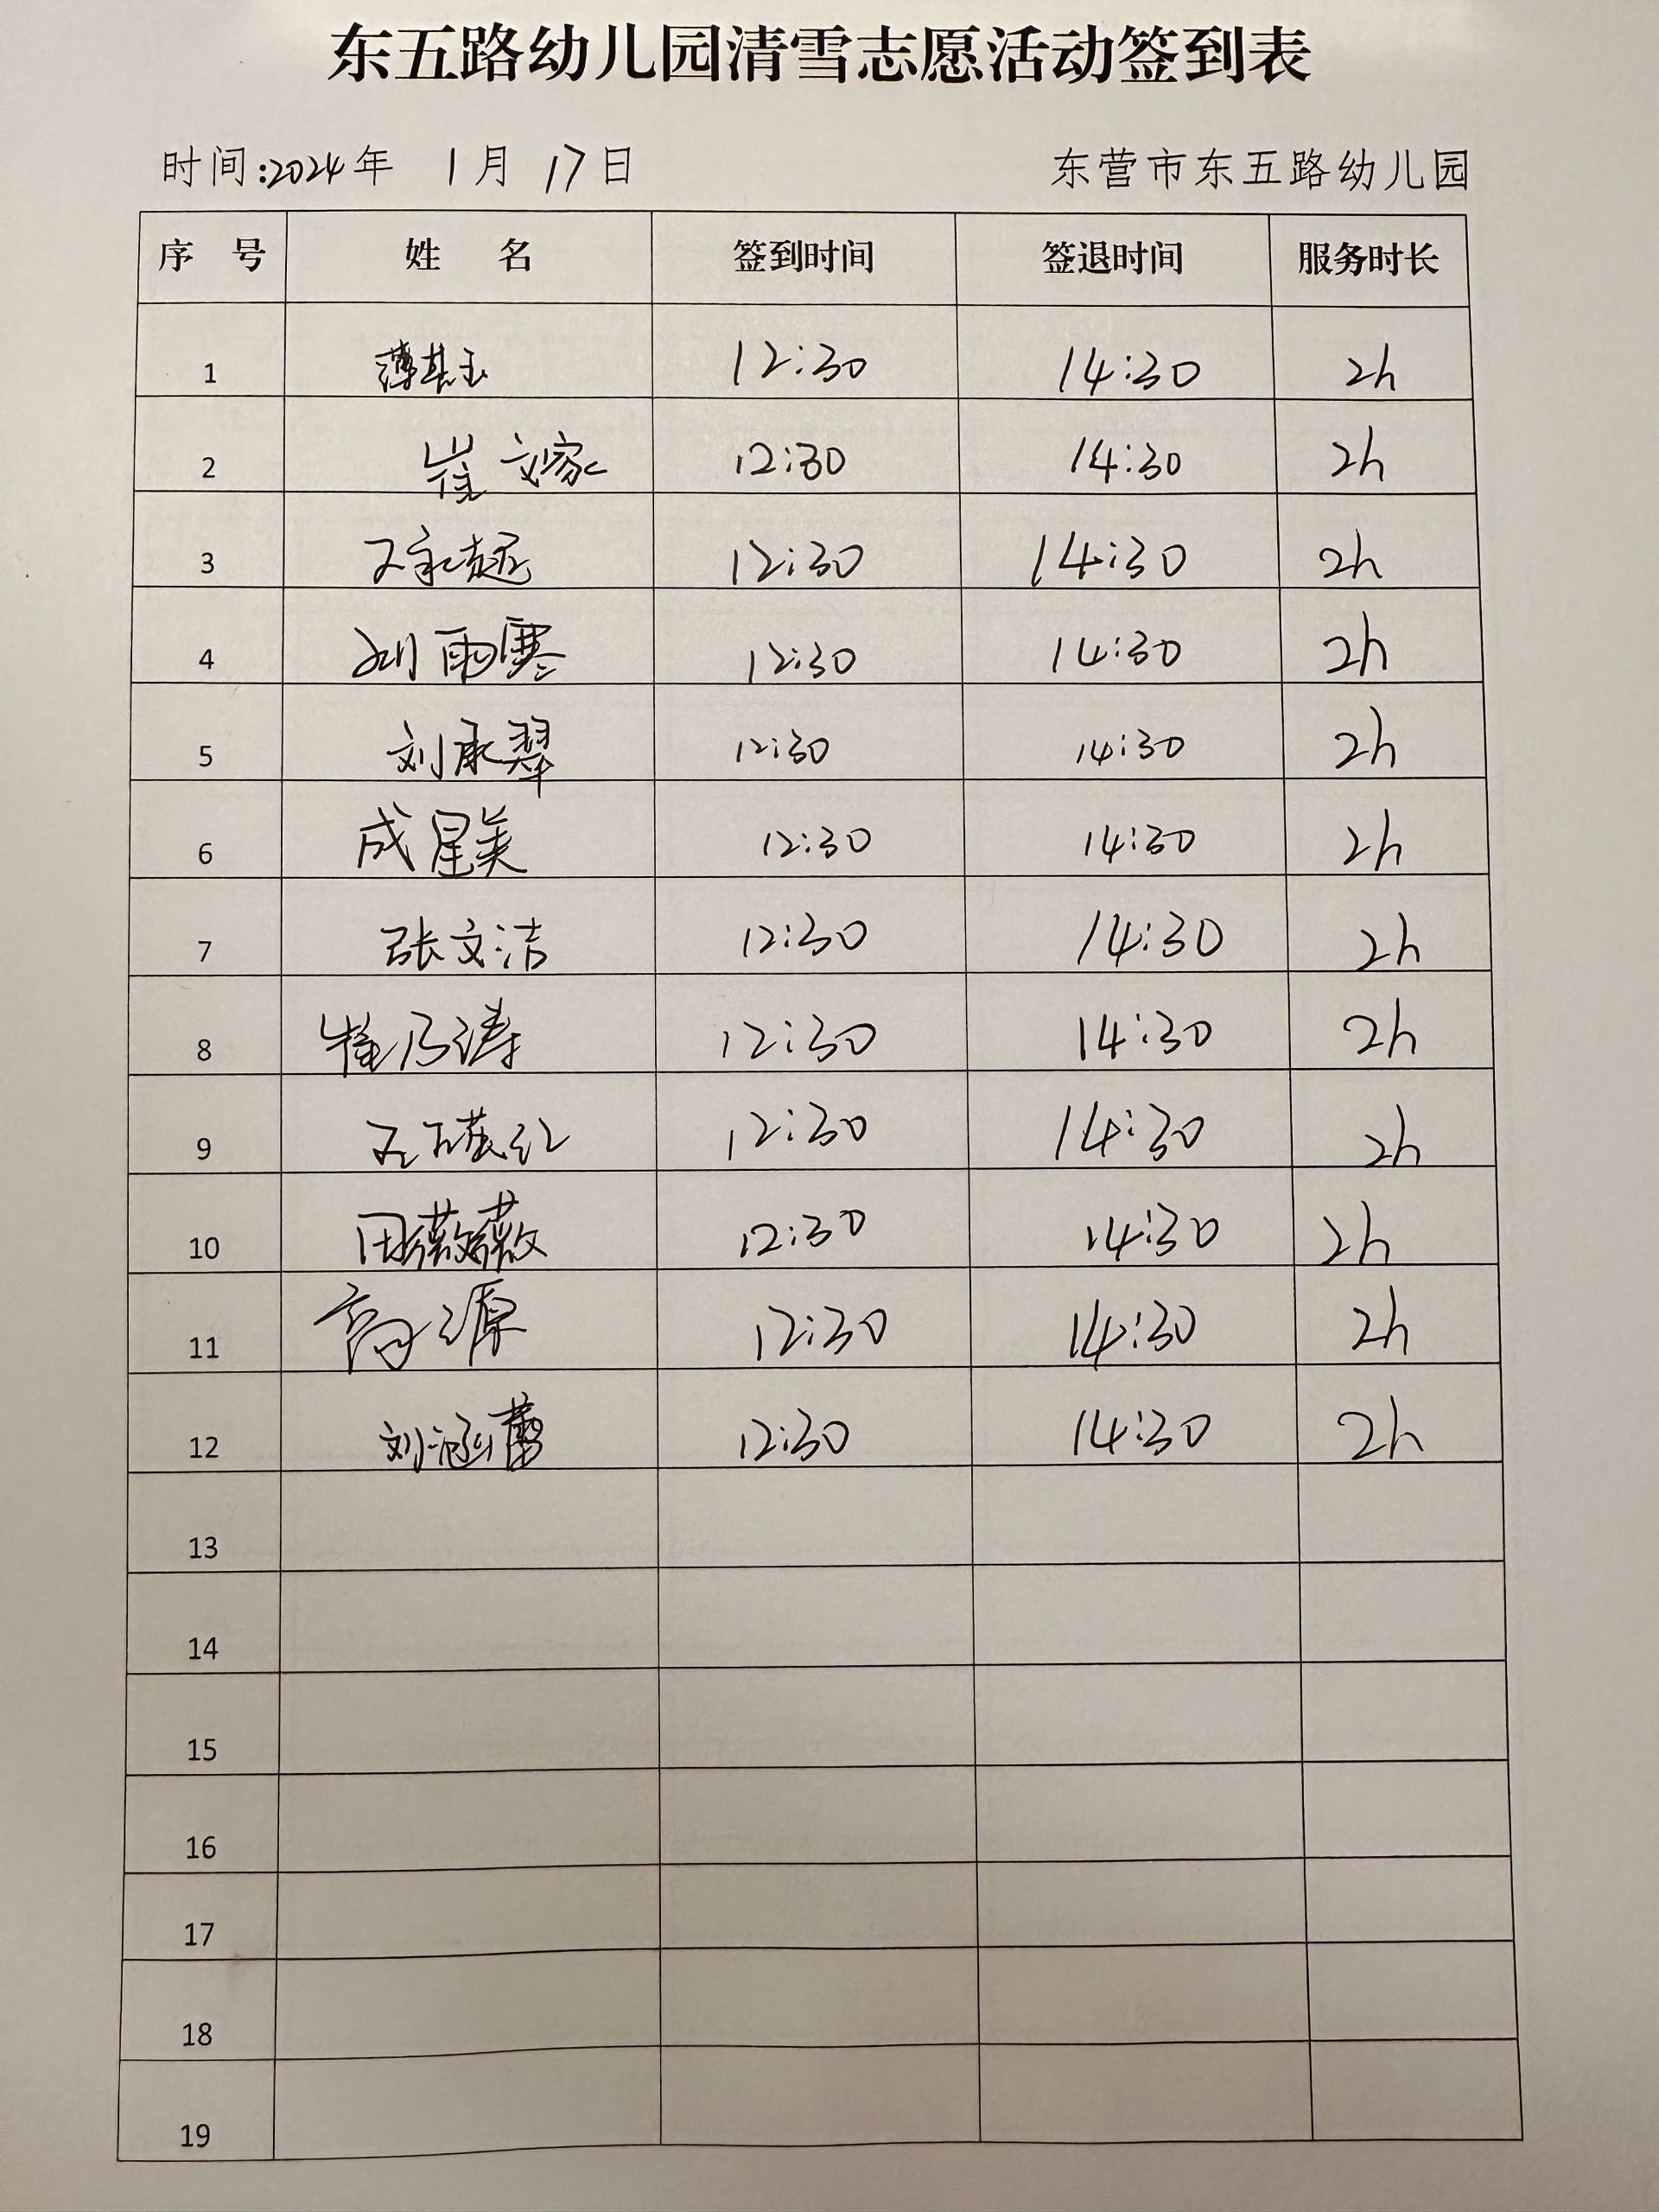 东五路幼儿园清雪志愿活动签到表
时间:2024年 1月 17日 东营市东五路幼儿园
序 号 姓 名 签到时间 签退时间 服务时长
1 薄其玉 12:30 14:30 2h
2 崔文家 12:30 14:30 2h
3 12:30 14:30 2h
4 刘雨蹇 12:30 14:30 2h
5 刘承翠 12:30 14:30 2h
6 成星美 12:30 14:30 2h
7 张文洁 12:30 14:30 2h
8 乃涛 12:30 14:30 2h
9 12:30 14:30 2h
10 田薇薇 12:30 14:30 2h
11 高源 12:30 14:30 2h
12 刘涵蕾 12:30 14:30 2h
13
14
15
16
17
18
19